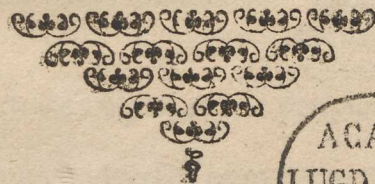 ACA
LUGD